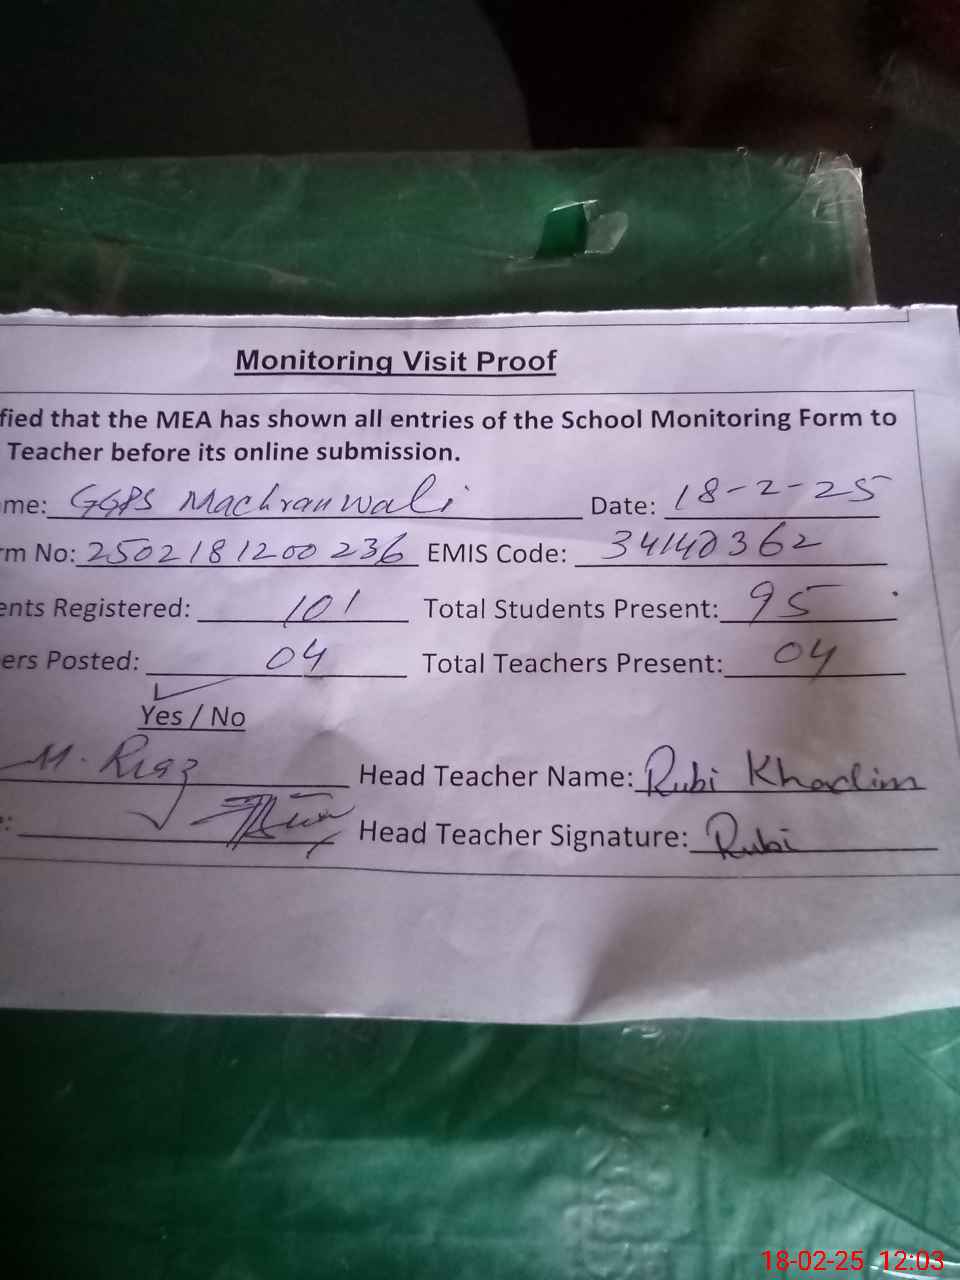 Monitoring Visit Proof
fied that the MEA has shown all entries of the School Monitoring Form to
Teacher before its online submission.
me: GGPS Machranwali Date: 18-2-25
rm No: 2502181200236 EMIS Code: 34140362
ents Registered: 101 Total Students Present: 95
ers Posted: 04 Total Teachers Present: 04
Yes / No
M. Riaz Head Teacher Name: Rubi Khadim
Head Teacher Signature: Rubi
18-02-25 12:03